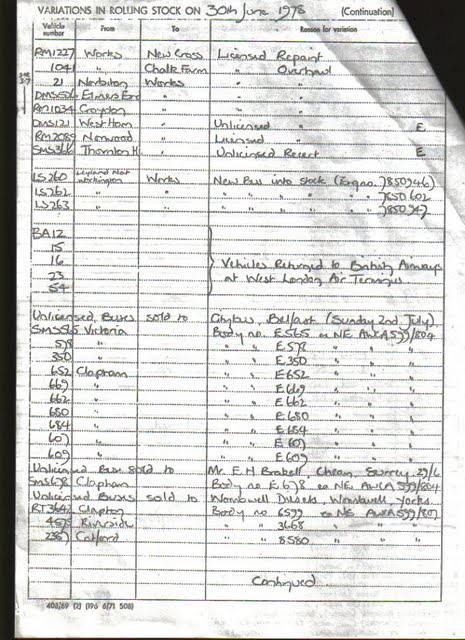 VARIATIONS IN ROLLING STOCK ON 30th June 1978 (Continuation)
Vehicle number From To Reason for variation
RM1227 Works New Cross Licensed Repaint
1041 " Chalk Farm " Overhaul
21 Norbiton Works " "
DMS552 Elmers End " " "
RM1034 Croydon " " "
DMS121 West Ham " Unlicensed " E
RM2089 Norwood " Licensed "
SMS366 Thornton H. " Unlicensed Recert E
LS260 Leyland Nat Workington Works New Bus into stock (Eng no. 850946)
LS262 " " " " " " " 850602
LS263 " " " " " " " 850947
BA12
15
16 Vehicles Returned to British Airways
23 at West London Air Terminus
54
Unlicensed Buses sold to Citybus, Belfast (Sunday 2nd July)
SMS565 Victoria Body no. E565 ex NE AWCA 599/804
578 " " E578 " " "
350 " " E350 " " "
652 Clapham " E652 " " "
669 " " E669 " " "
662 " " E662 " " "
680 " " E680 " " "
684 " " E684 " " "
607 " " E607 " " "
609 " " E609 " " "
Unlicensed Bus sold to Mr. E.H. Brakell, Cheam, Surrey 29/6
SMS678 Clapham Body no E678 ex NE AWCA 599/804
Unlicensed Buses sold to Wombwell Diesels, Wombwell, Yorks.
RT3642 Clapton Body no 6599 ex NE AWCA 599/807
Riverside " " 3668 " " "
Catford " " 8580 " " "
Continued